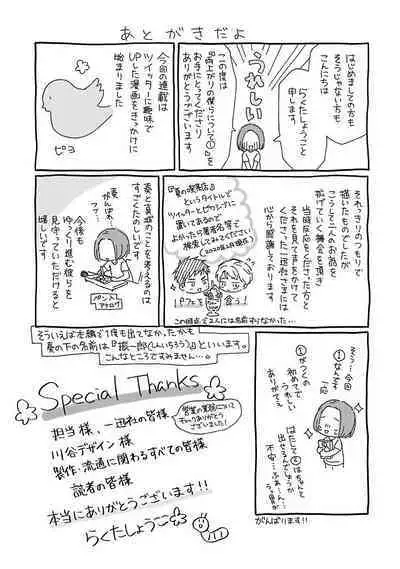 あとがきだよ
はじめましての方も
そうじゃない方も
こんにちは
らくたしょうこと
申します。
うれしい
この度は
『雨上がりの僕らについて①』を
お手にとってくださり
ありがとうございます
今回の連載は
ツイッターに趣味で
UPした漫画をきっかけに
始まりました
ピヨ
それっきりのつもりで
描いたものでしたが
こうして二人のお話を
広げていく機会を頂き
当時反応をくださった方と
それを見てお声をかけて
くださった一迅社さまには
心から感謝しております
『夏の喫茶店』
というタイトルで
ツイッターとピクシブに
置いてあるので
よかったら著者名等で
検索してみてください
(2020年2月現在)
パフェを
食う!
この時点で2人には名前すらなかった…
奏と真城のことを考えるのは
すごくたのしいです
奏
がんばれ
フフ…
ペン入れ
アナログ
今後も
ゆっくり進む彼らを
見守っていただけると
嬉しいです
そういえば本編で1度も出てなかったかも
奏の下の名前は『振一郎(しんいちろう)』といいます。
こんなところですみません…。
そう…今回
①なんです
一応
①がつくの
初めてで
うれしい
ありがてぇ
はたして②はちゃんと
出せるんでしょうか
不安…
がんばります!!
Special Thanks
担当様、一迅社の皆様
営業の業務について
チェックありがとう
ございました!
川谷デザイン様
製作・流通に関わるすべての皆様
読者の皆様
本当にありがとうございます!!
らくたしょうこ